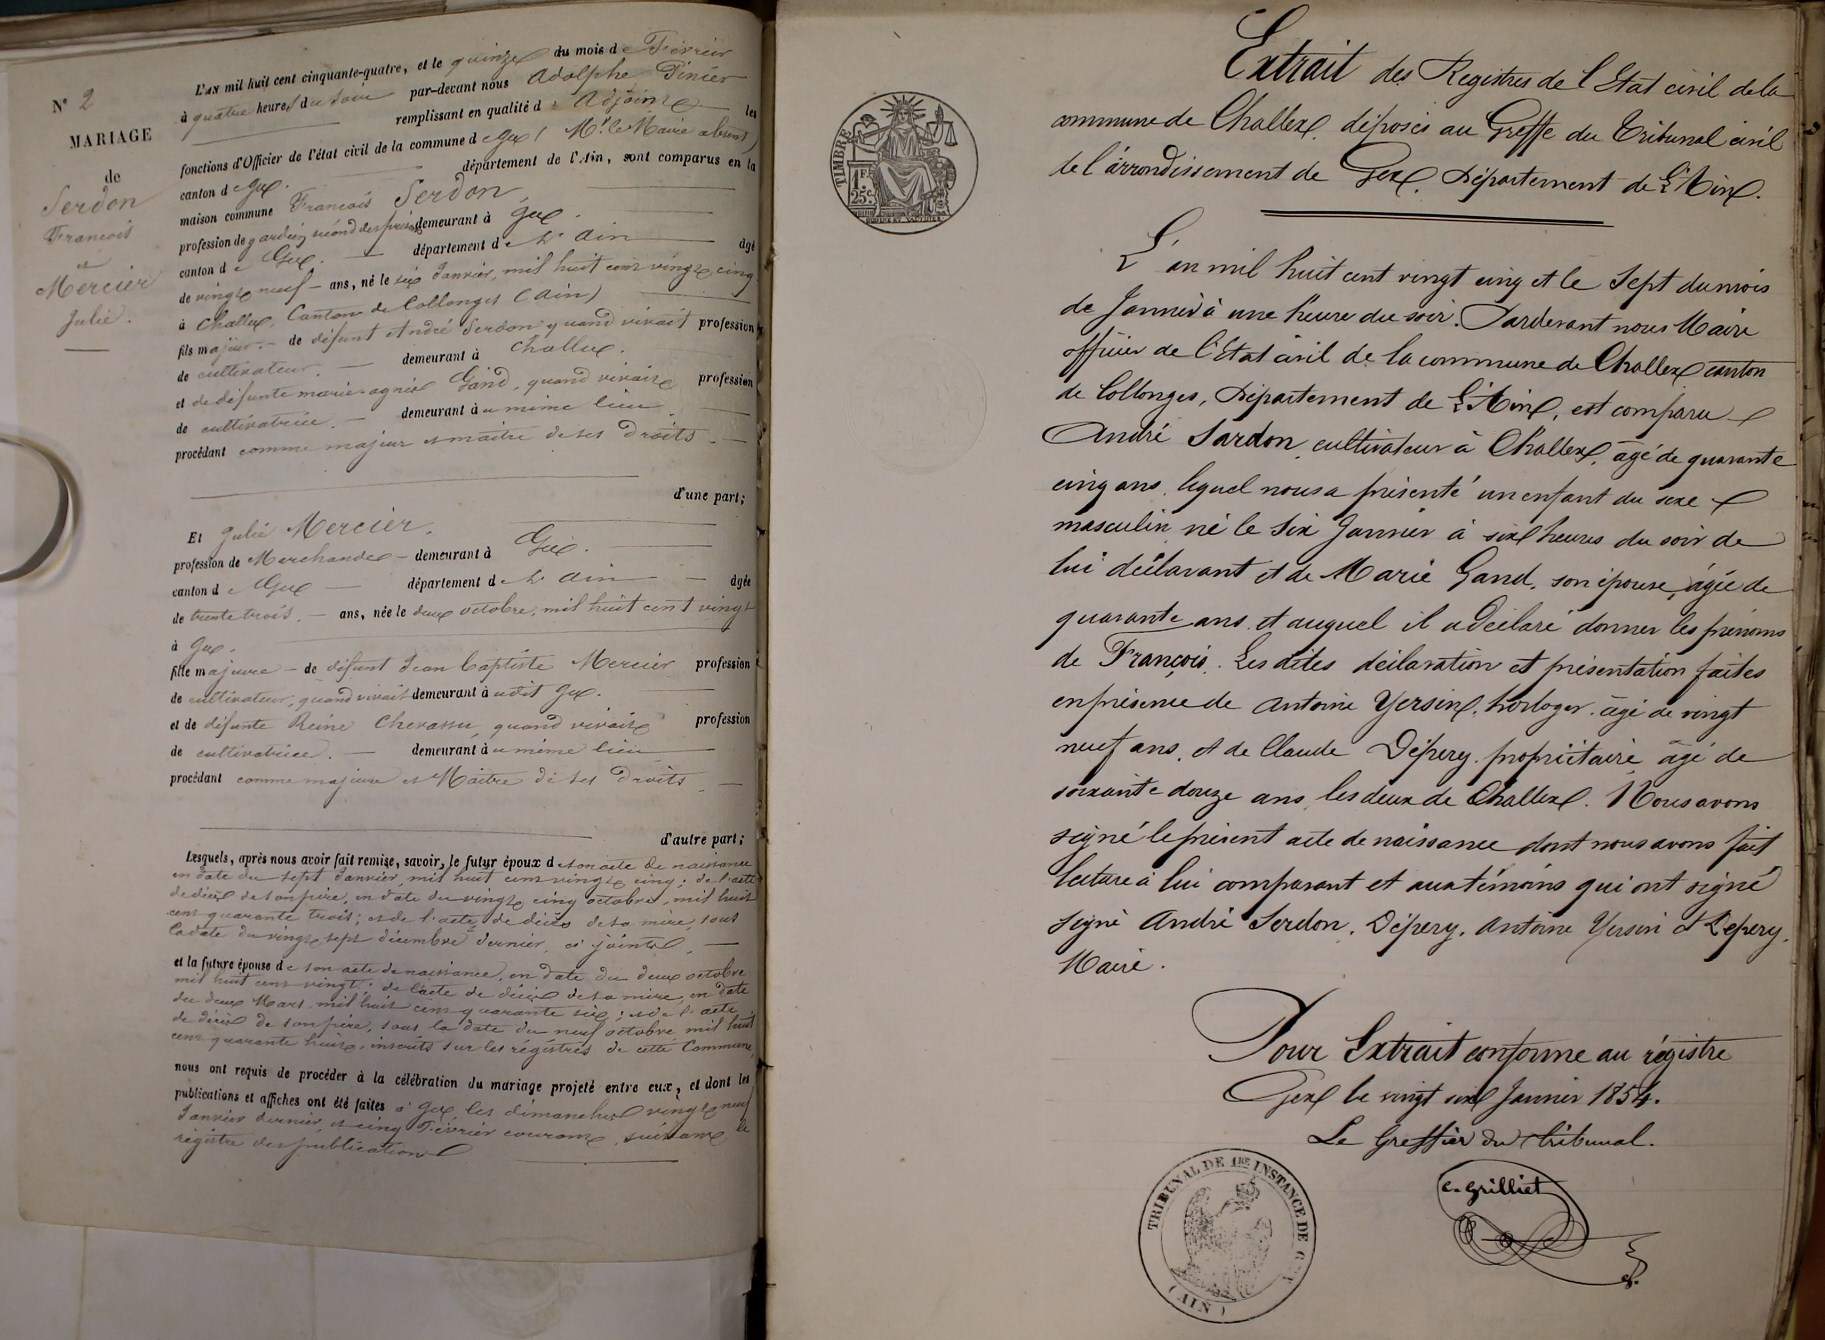 N° 2
MARIAGE
de
Serdon
François
et
Mercier
Julie.
L'AN mil huit cent cinquante-quatre, et le quinze du mois de Février
à quatre heures du soir par-devant nous Adolphe Pinier
remplissant en qualité d'adjoint les
fonctions d'Officier de l'état civil de la commune de Gex (Mr. le Maire absent)
canton de Gex. département de l'Ain, sont comparus en la
maison commune François Serdon,
profession de gardien sécond des prisons demeurant à Gex.
canton de Gex. département de L'Ain âgé
de vingt neuf ans, né le six Janvier, mil huit cent vingt cinq
à Challex, Canton de Collonges (Ain)
fils majeur de défunt André Serdon quand vivait profession
de cultivateur. demeurant à Challex.
et de défunte marie agnès Gand, quand vivait profession
de cultivatrice. demeurant au même lieu.
procédant comme majeur et maître de ses Droits.
d'une part;
Et Julie Mercier.
profession de Marchande demeurant à Gex.
canton de Gex département de L'Ain âgée
de trente trois. ans, née le deux octobre, mil huit cent vingt
à Gex.
fille majeure de défunt Jean Baptiste Mercier profession
de cultivateur, quand vivait demeurant à udit Gex.
et de défunte Reine Chevassu, quand vivait profession
de cultivatrice. demeurant au même lieu
procédant comme majeure et Maître de ses Droits.
d'autre part;
Lesquels, après nous avoir fait remise, savoir, le futur époux de son acte de naissance
en date du sept Janvier, mil huit cent vingt cinq; de l'acte
de décès de son père, en date du vingt cinq octobre, mil huit
cent quarante trois; et de l'acte de décès de sa mère, sous
la date du vingt sept décembre dernier, ci joints,
et la future épouse de son acte de naissance, en date du deux octobre
mil huit cent vingt; de l'acte de décès de sa mère, en date
du deux Mars mil huit cent quarante six; et de l'acte
de décès de son père, sous la date du neuf octobre mil huit
cent quarante huit, inscrits sur les régistres de cette Commune,
nous ont requis de procéder à la célébration du mariage projeté entre eux, et dont les
publications et affiches ont été faites à Gex, les dimanches vingt neuf
Janvier dernier, et cinq Février courant, suivant le
régistre des publications
TIMBRE
1.FR
25c.
Extrait des Registres de l'Etat civil de la
commune de Challex. déposés au Greffe du Tribunal civil
de l'arrondissement de Gex. Département de L'Ain.
L'an mil huit cent vingt cinq et le Sept du mois
de Janvier à une heure du soir. Pardevant nous Maire
officier de l'Etat civil de la commune de Challex canton
de Collonges, Département de L'Ain, est comparu
André Sardon, cultivateur à Challex, âgé de quarante
cinq ans, lequel nous a présenté un enfant du sexe
masculin né le Six Janvier à six heures du soir de
lui déclarant et de Marie Gand, son épouse, âgée de
quarante ans et auquel il a déclaré donner les prénoms
de François. Les dites déclaration et présentation faites
en présence de Antoine Yersin, horloger, âgé de vingt
neuf ans, et de Claude Dépery, propriétaire âgé de
soixante douze ans, les deux de Challex. Nous avons
signé le présent acte de naissance dont nous avons fait
lecture à lui comparant et aux témoins qui ont signé
signé André Serdon, Dépery, Antoine Yersin & Depery,
Maire.
Pour Extrait conforme au régistre
Gex le vingt six Janvier 1854.
Le Greffier du Tribunal.
C. Grilliet
TRIBUNAL DE 1RE INSTANCE DE GEX
(AIN)